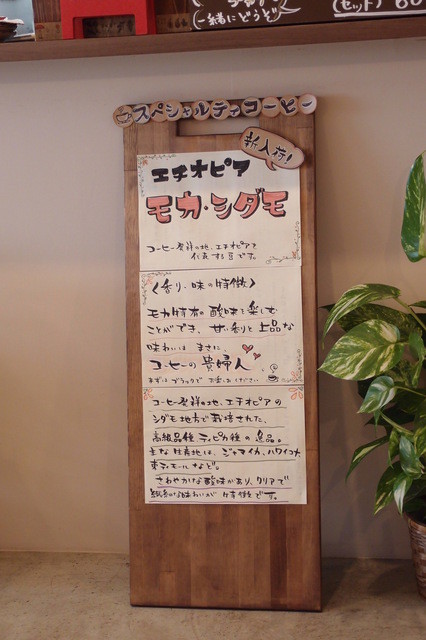 (一緒にどうぞ)
(セット)
スペシャルティコーヒー
新入荷!
エチオピア
モカ・シダモ
コーヒー発祥の地、エチオピアを
代表する豆です。
〈香り・味の特徴〉
モカ特有の酸味を楽しむ
ことができ、甘い香りと上品な
味わいは まさに、
コーヒーの貴婦人
まずはブラックで お楽しみください
コーヒー発祥の地、エチオピアの
シダモ地方で栽培された、
高級品種ティピカ種の逸品。
主な生産地は、ジャマイカ、ハワイコナ
東ティモールなど。
さわやかな酸味があり、クリアで
繊細な味わいが特徴です。